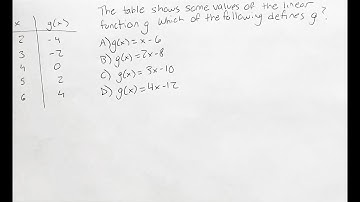 The table shows some values of the linear
function g which of the following defines g?
x g(x)
2 -4
3 -2
4 0
5 2
6 4
A) g(x) = x - 6
B) g(x) = 2x - 8
C) g(x) = 3x - 10
D) g(x) = 4x - 12